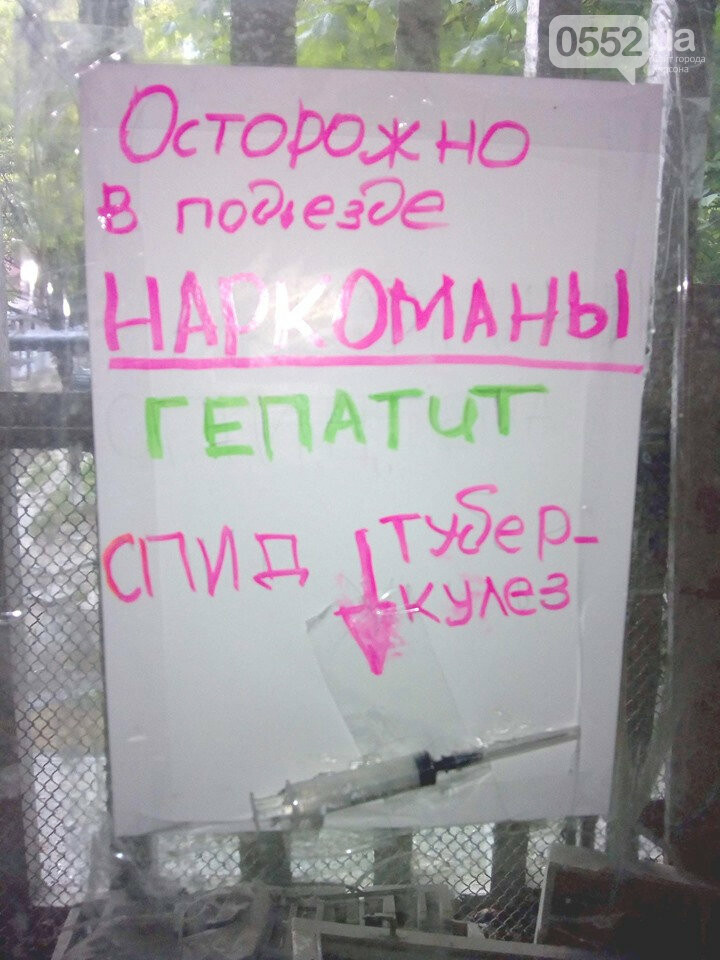 0552.ua
сайт города
Херсона
Осторожно
в подъезде
НАРКОМАНЫ
ГЕПАТИТ
СПИД тубер-
кулез